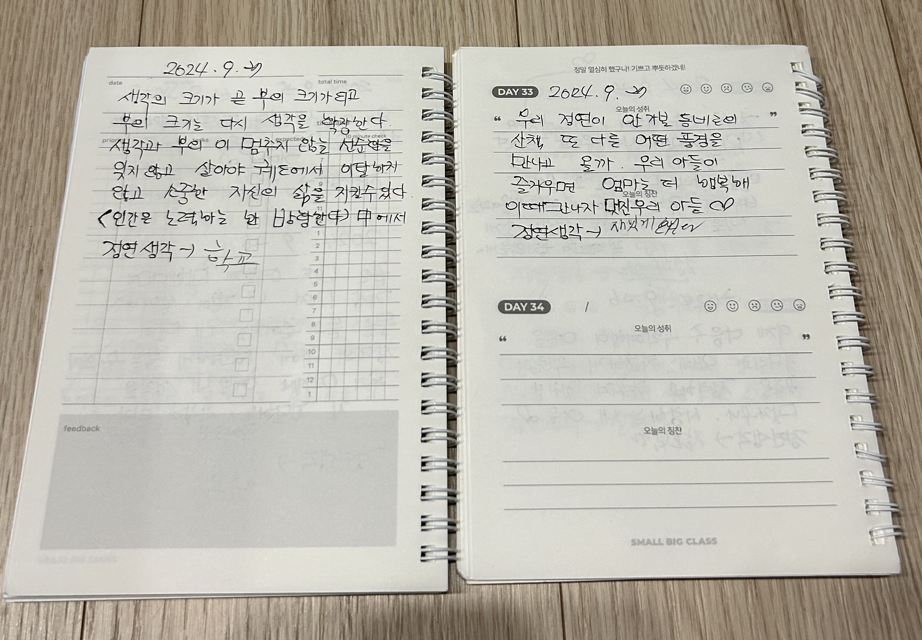 date
2024. 9.
total time
생각의 크기가 곧 부의 크기가 되고
부의 크기는 다시 생각을 확장한다
생각과 부의 이 멈추지 않을 선순환을
잊지 않고 살아야 궤도에서 이탈하지
않고 소중한 자신의 삶을 지킬수 있다
<인간은 노력하는 한 방황한다> 中에서
정연생각→ 학교
1
2
3
4
5
6
7
8
9
10
11
12
1
feedback
정말 열심히 했구나! 기쁘고 뿌듯하겠네!
DAY 33 2024. 9.
오늘의 성취
“ 우리 정연이 안 가본 동네로의 ”
산책, 또 다른 어떤 풍경을
만나고 올까. 우리 아들이
즐거우면 엄마는 더 행복해
오늘의 칭찬
이따 만나자 멋진 우리 아들 ♡
정연생각→
DAY 34 /
오늘의 성취
“ ”
오늘의 칭찬
SMALL BIG CLASS